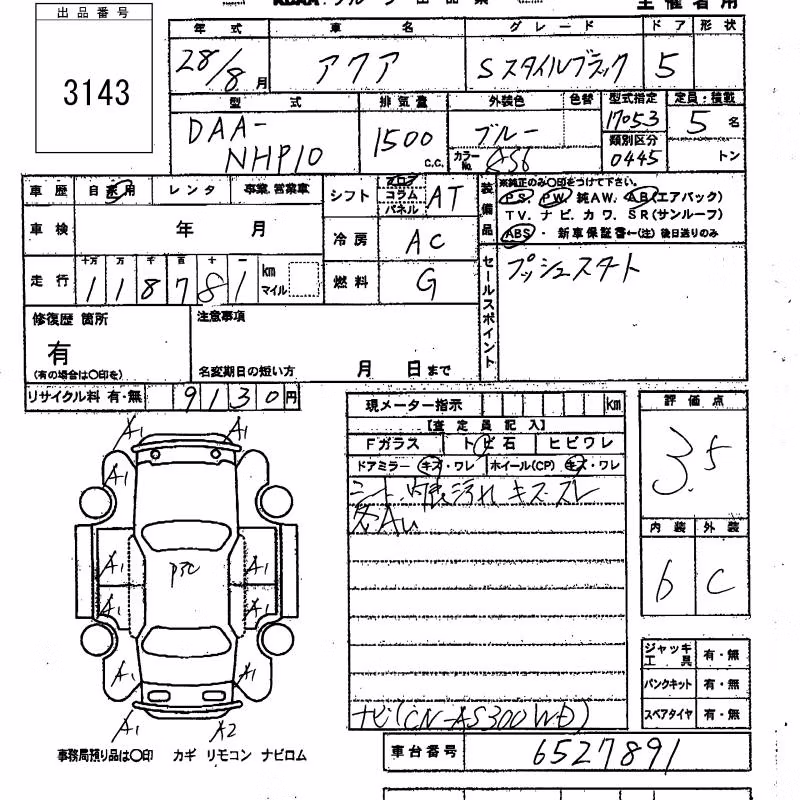 出品番号
3143
KDAA グループ 出品票
主催者用
年式 車名 グレード ドア 形状
28/8月 アクア Sスタイルブラック 5
型式 排気量 外装色 色替 型式指定 定員・積載
DAA-NHP10 1500 c.c. ブルー 17053 5 名
カラーNo. 8S6 類別区分 0445 トン
車歴 自家用 レンタ 事業.営業車
シフト フロア コラム パネル AT
装備品 ※純正のみ〇印をつけて下さい。
PS. PW. 純AW. AB(エアバック)
TV. ナビ. カワ. SR(サンルーフ)
ABS・ 新車保証書←(注) 後日送りのみ
車検 年 月
冷房 AC
走行 十万 万 千 百 十 一
118781 km マイル
燃料 G
セールスポイント プッシュスタート
修復歴 箇所
有
(有の場合は〇印を)
注意事項
名変期日の短い方 月 日まで
リサイクル料 有・無 9130円
現メーター指示 km
【査定員記入】
Fガラス トビ石 ヒビワレ
ドアミラー キズ・ワレ ホイール(CP) キズ・ワレ
シート、内張汚れ キズ スレ
ナビ(CN-AS300WD)
評価点
3.5
内装 外装
b C
ジャッキ工具 有・無
パンクキット 有・無
スペアタイヤ 有・無
A1 A1
A1
A1 P3C A1
A1 A1
A1 A1
A1 A2
事務局預り品は〇印 カギ リモコン ナビロム
車台番号 6527891